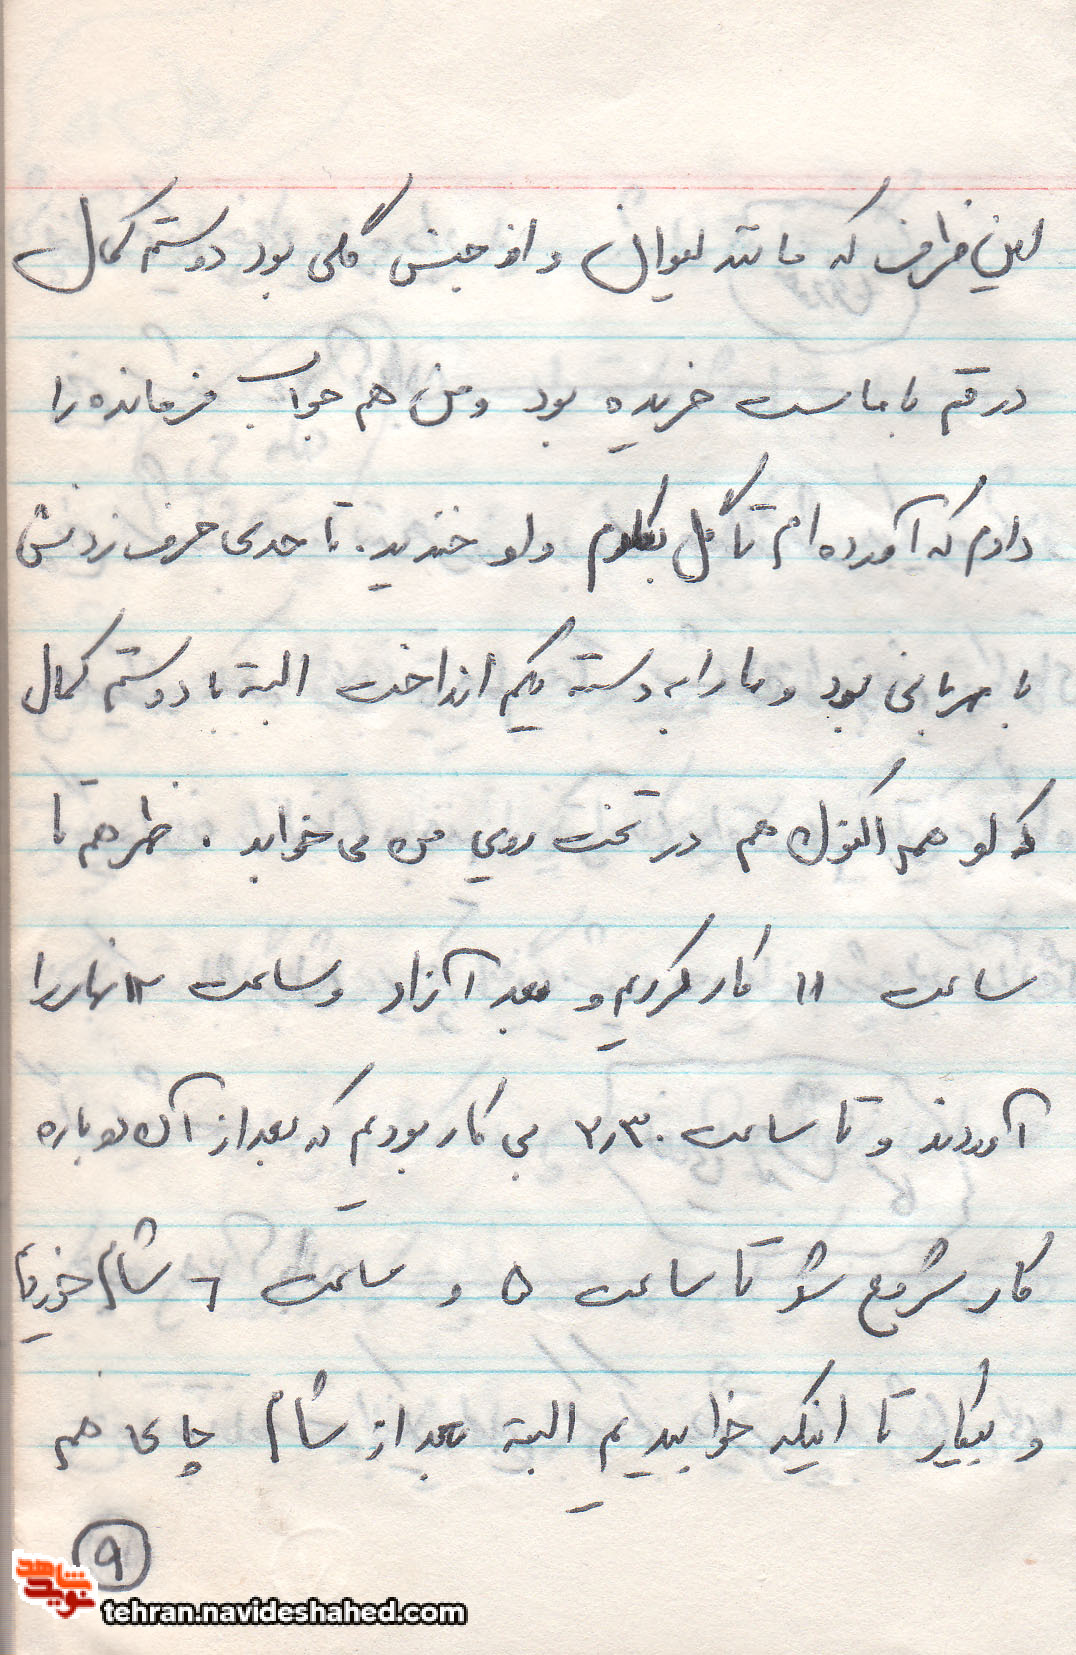 این ظرف که مانند لیوان و از جنس گلی بود دوستم کمال
در قم با ماست خریده بود و من هم جواب فرمانده را
دادم که آورده‌ام تا گل بکارم و او خندید. تا حدی حرف زدنش
با مهربانی بود و ما را به دسته یکم انداخت البته با دوستم کمال
که او هم اکنون هم در تخت روی من می خوابد. ظهر هم تا
ساعت ۱۱ کار کردیم و بعد آزاد و ساعت ۱۲ نهار را
آوردند و تا ساعت ۲٫۳۰ بی کار بودیم که بعد از آن دوباره
کار شروع شد تا ساعت ۵ و ساعت ۶ شام خوردیم
و بیکار تا اینکه خوابیدیم البته بعد از شام چای هم
۹
شاهد
نوید
tehran.navideshahed.com